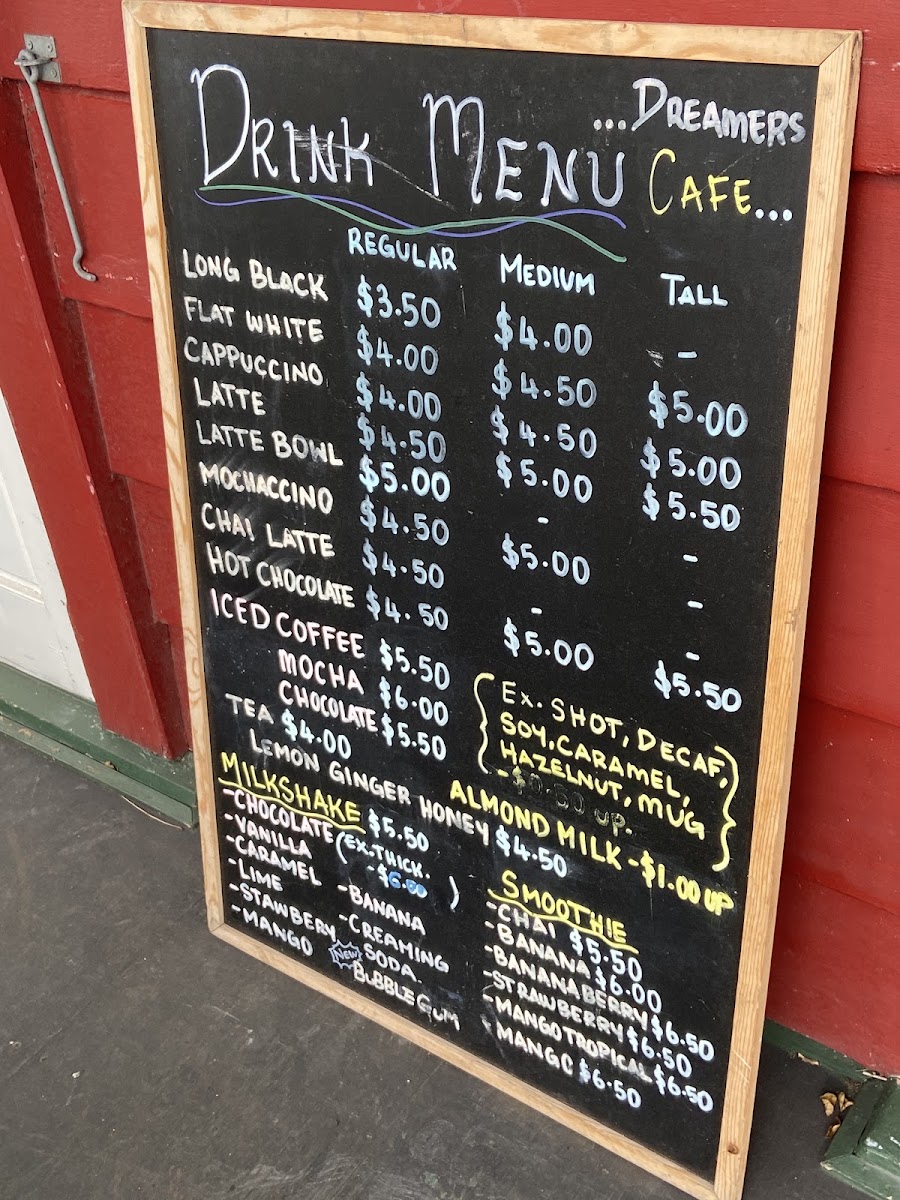 DRINK MENU ...DREAMERS
CAFE...
REGULAR MEDIUM TALL
LONG BLACK $3.50 $4.00 -
FLAT WHITE $4.00 $4.50 $5.00
CAPPUCCINO $4.00 $4.50 $5.00
LATTE $4.50 $5.00 $5.50
LATTE BOWL $5.00 - -
MOCHACCINO $4.50 $5.00 -
CHAI LATTE $4.50 - -
HOT CHOCOLATE $4.50 $5.00 $5.50
ICED COFFEE $5.50
MOCHA $6.00
CHOCOLATE $5.50
TEA $4.00
LEMON GINGER HONEY $4.50
{EX. SHOT, DECAF,
SOY, CARAMEL,
HAZELNUT, MUG
- $0.50 UP.}
ALMOND MILK - $1.00 UP
MILKSHAKE $5.50
(EX. THICK.
- $6.00)
- CHOCOLATE
- VANILLA
- CARAMEL
- LIME
- STAWBERY
- MANGO
- BANANA
- CREAMING
SODA
NEW
BUBBLE GUM
SMOOTHIE
- CHAI $5.50
- BANANA $6.00
- BANANA BERRY $6.50
- STRAWBERRY $6.50
- MANGO TROPICAL $6.50
- MANGO $6.50